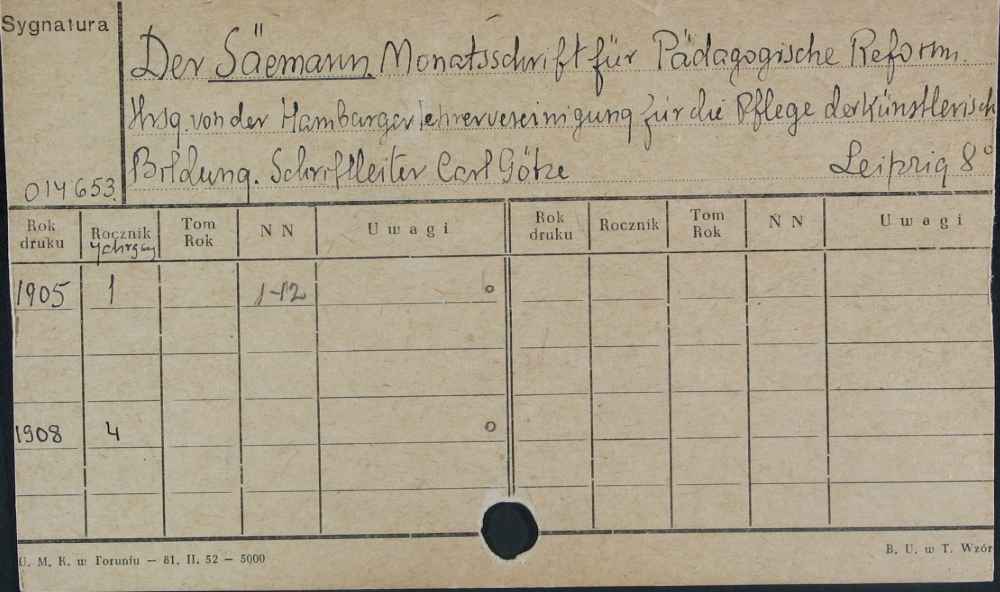 Sygnatura
Der Säemann. Monatsschrift für Pädagogische Reform.
Hrsg. von der Hamburger Lehrervereinigung für die Pflege der Künstlerisch
Bildung. Schriftleiter Carl Götze Leipzig 8°
014653.
Rok druku Rocznik Tom Rok N N Uwagi Rok druku Rocznik Tom Rok N N Uwagi
Jahrgang
1905 1 1-12 o
1908 4 o
U. M. K. w Toruniu — 81. II. 52 — 5000 B. U. w T. Wzór